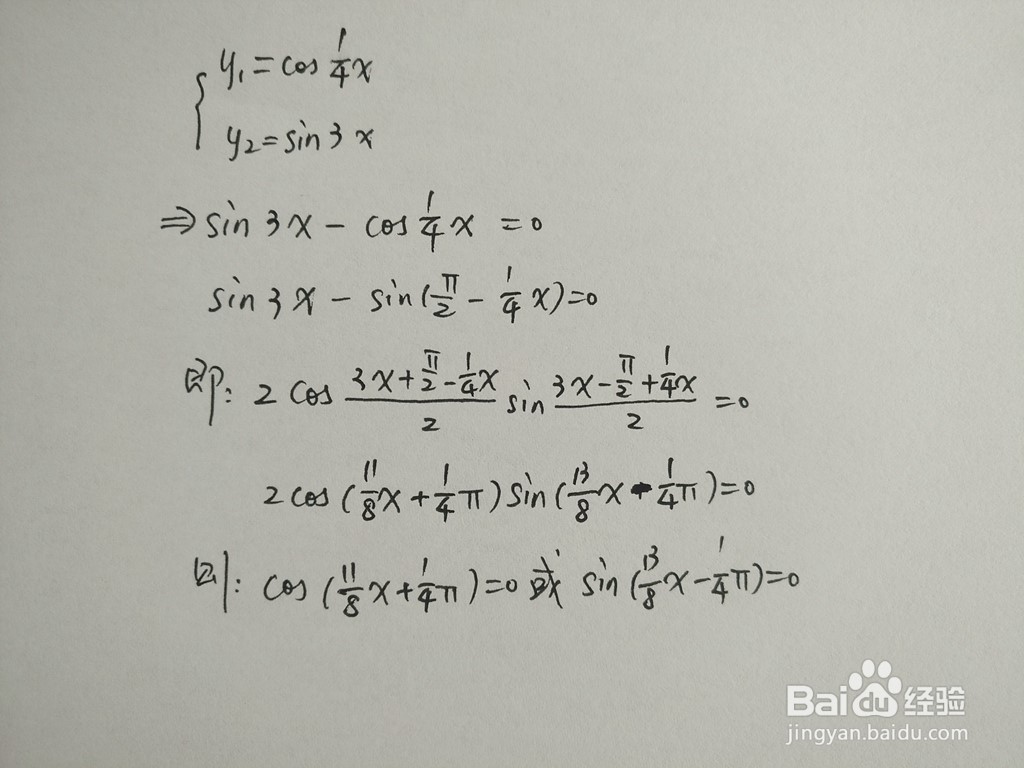 y₁=cos 1/4 x
y₂=sin 3x
⇒ sin 3x - cos 1/4 x = 0
sin 3x - sin(π/2 - 1/4 x)=0
即: 2 cos (3x+π/2-1/4x)/2 sin (3x-π/2+1/4x)/2 =0
2 cos (11/8 x + 1/4 π) sin (13/8 x - 1/4 π)=0
则: cos (11/8 x + 1/4 π)=0 或 sin (13/8 x - 1/4 π)=0
Baidu 经验
jingyan.baidu.com